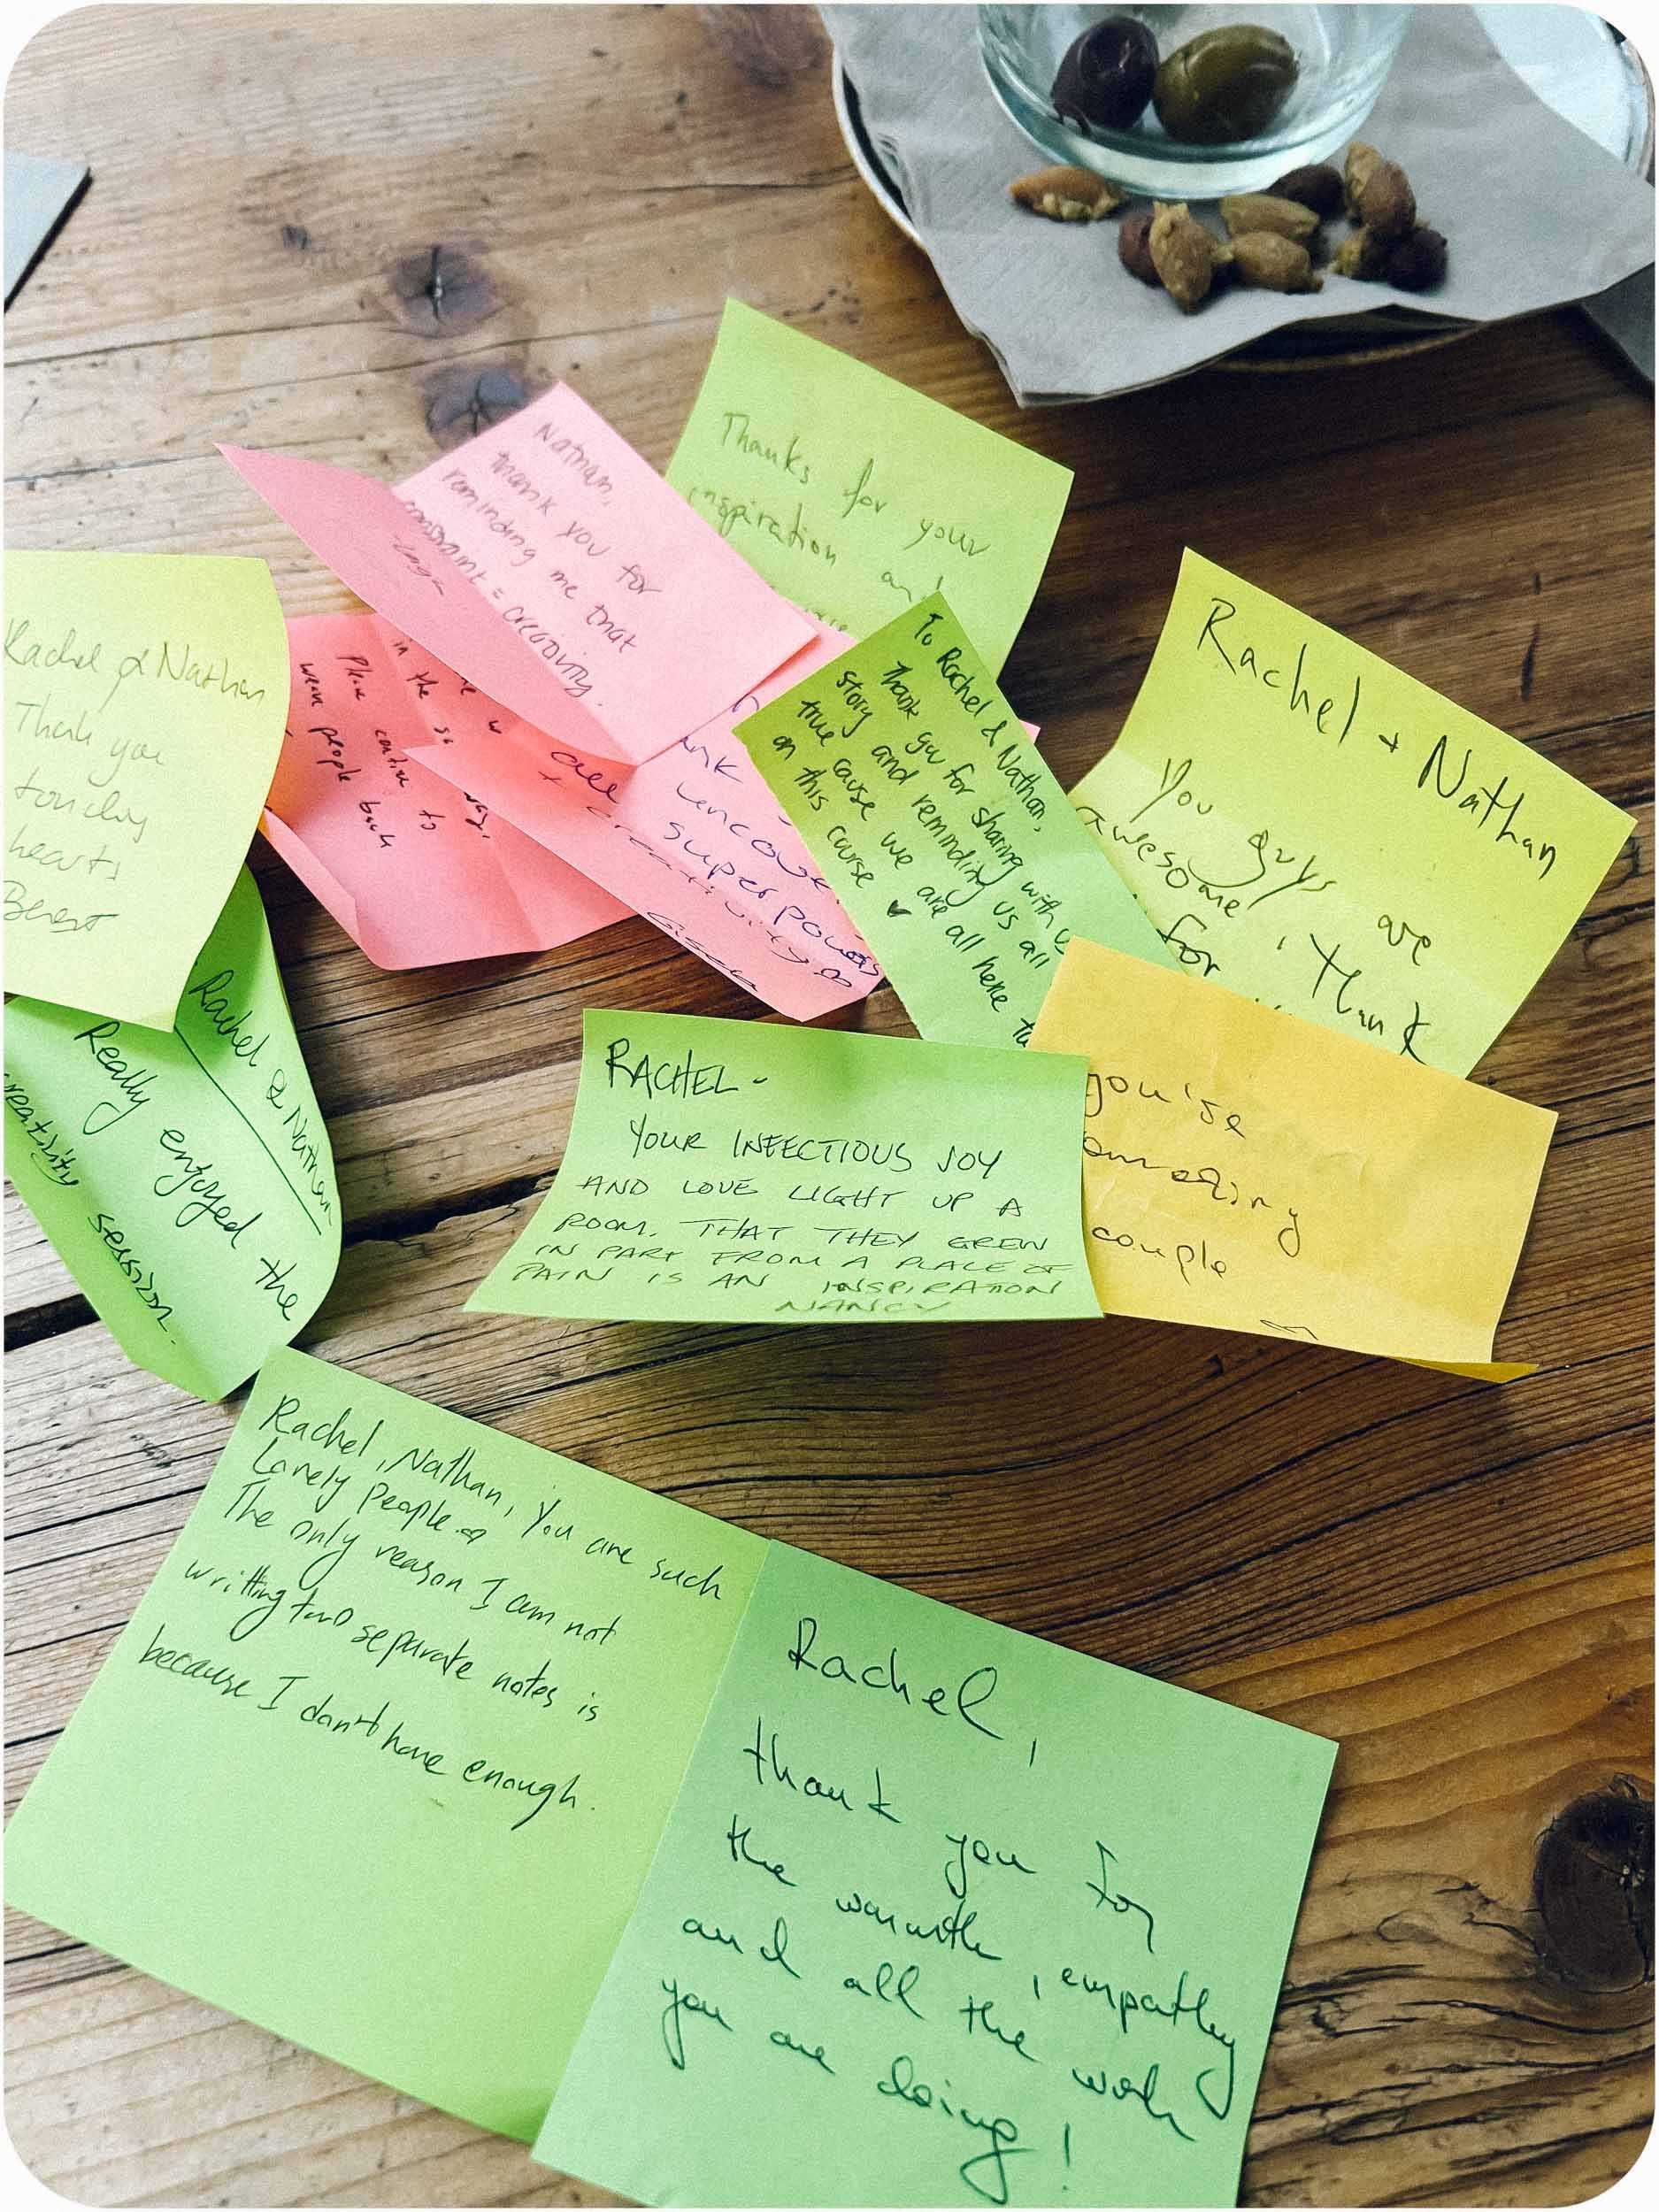 Thanks for your
inspiration and
Nathan,
thank you for
reminding me that
constraint = creativity.
in the
Please continue to
wear people back
uncover
superpowers
+ creativity
To Rachel & Nathan,
Thank you for sharing with us
story and reminding us all
true cause we are all here to
on this course
Rachel + Nathan
You guys are
awesome, thank
for
Rachel & Nathan
Thank you
touching
hearts
Rachel & Nathan
Really enjoyed the
creativity session.
RACHEL-
YOUR INFECTIOUS JOY
AND LOVE LIGHT UP A
ROOM. THAT THEY GREW
IN PART FROM A PLACE OF
PAIN IS AN INSPIRATION
NANCY
you're
couple
Rachel, Nathan, You are such
Lovely People
The only reason I am not
writting two separate notes is
because I don't have enough.
Rachel,
thank you for
the warmth, empathy
and all the work
you are doing!